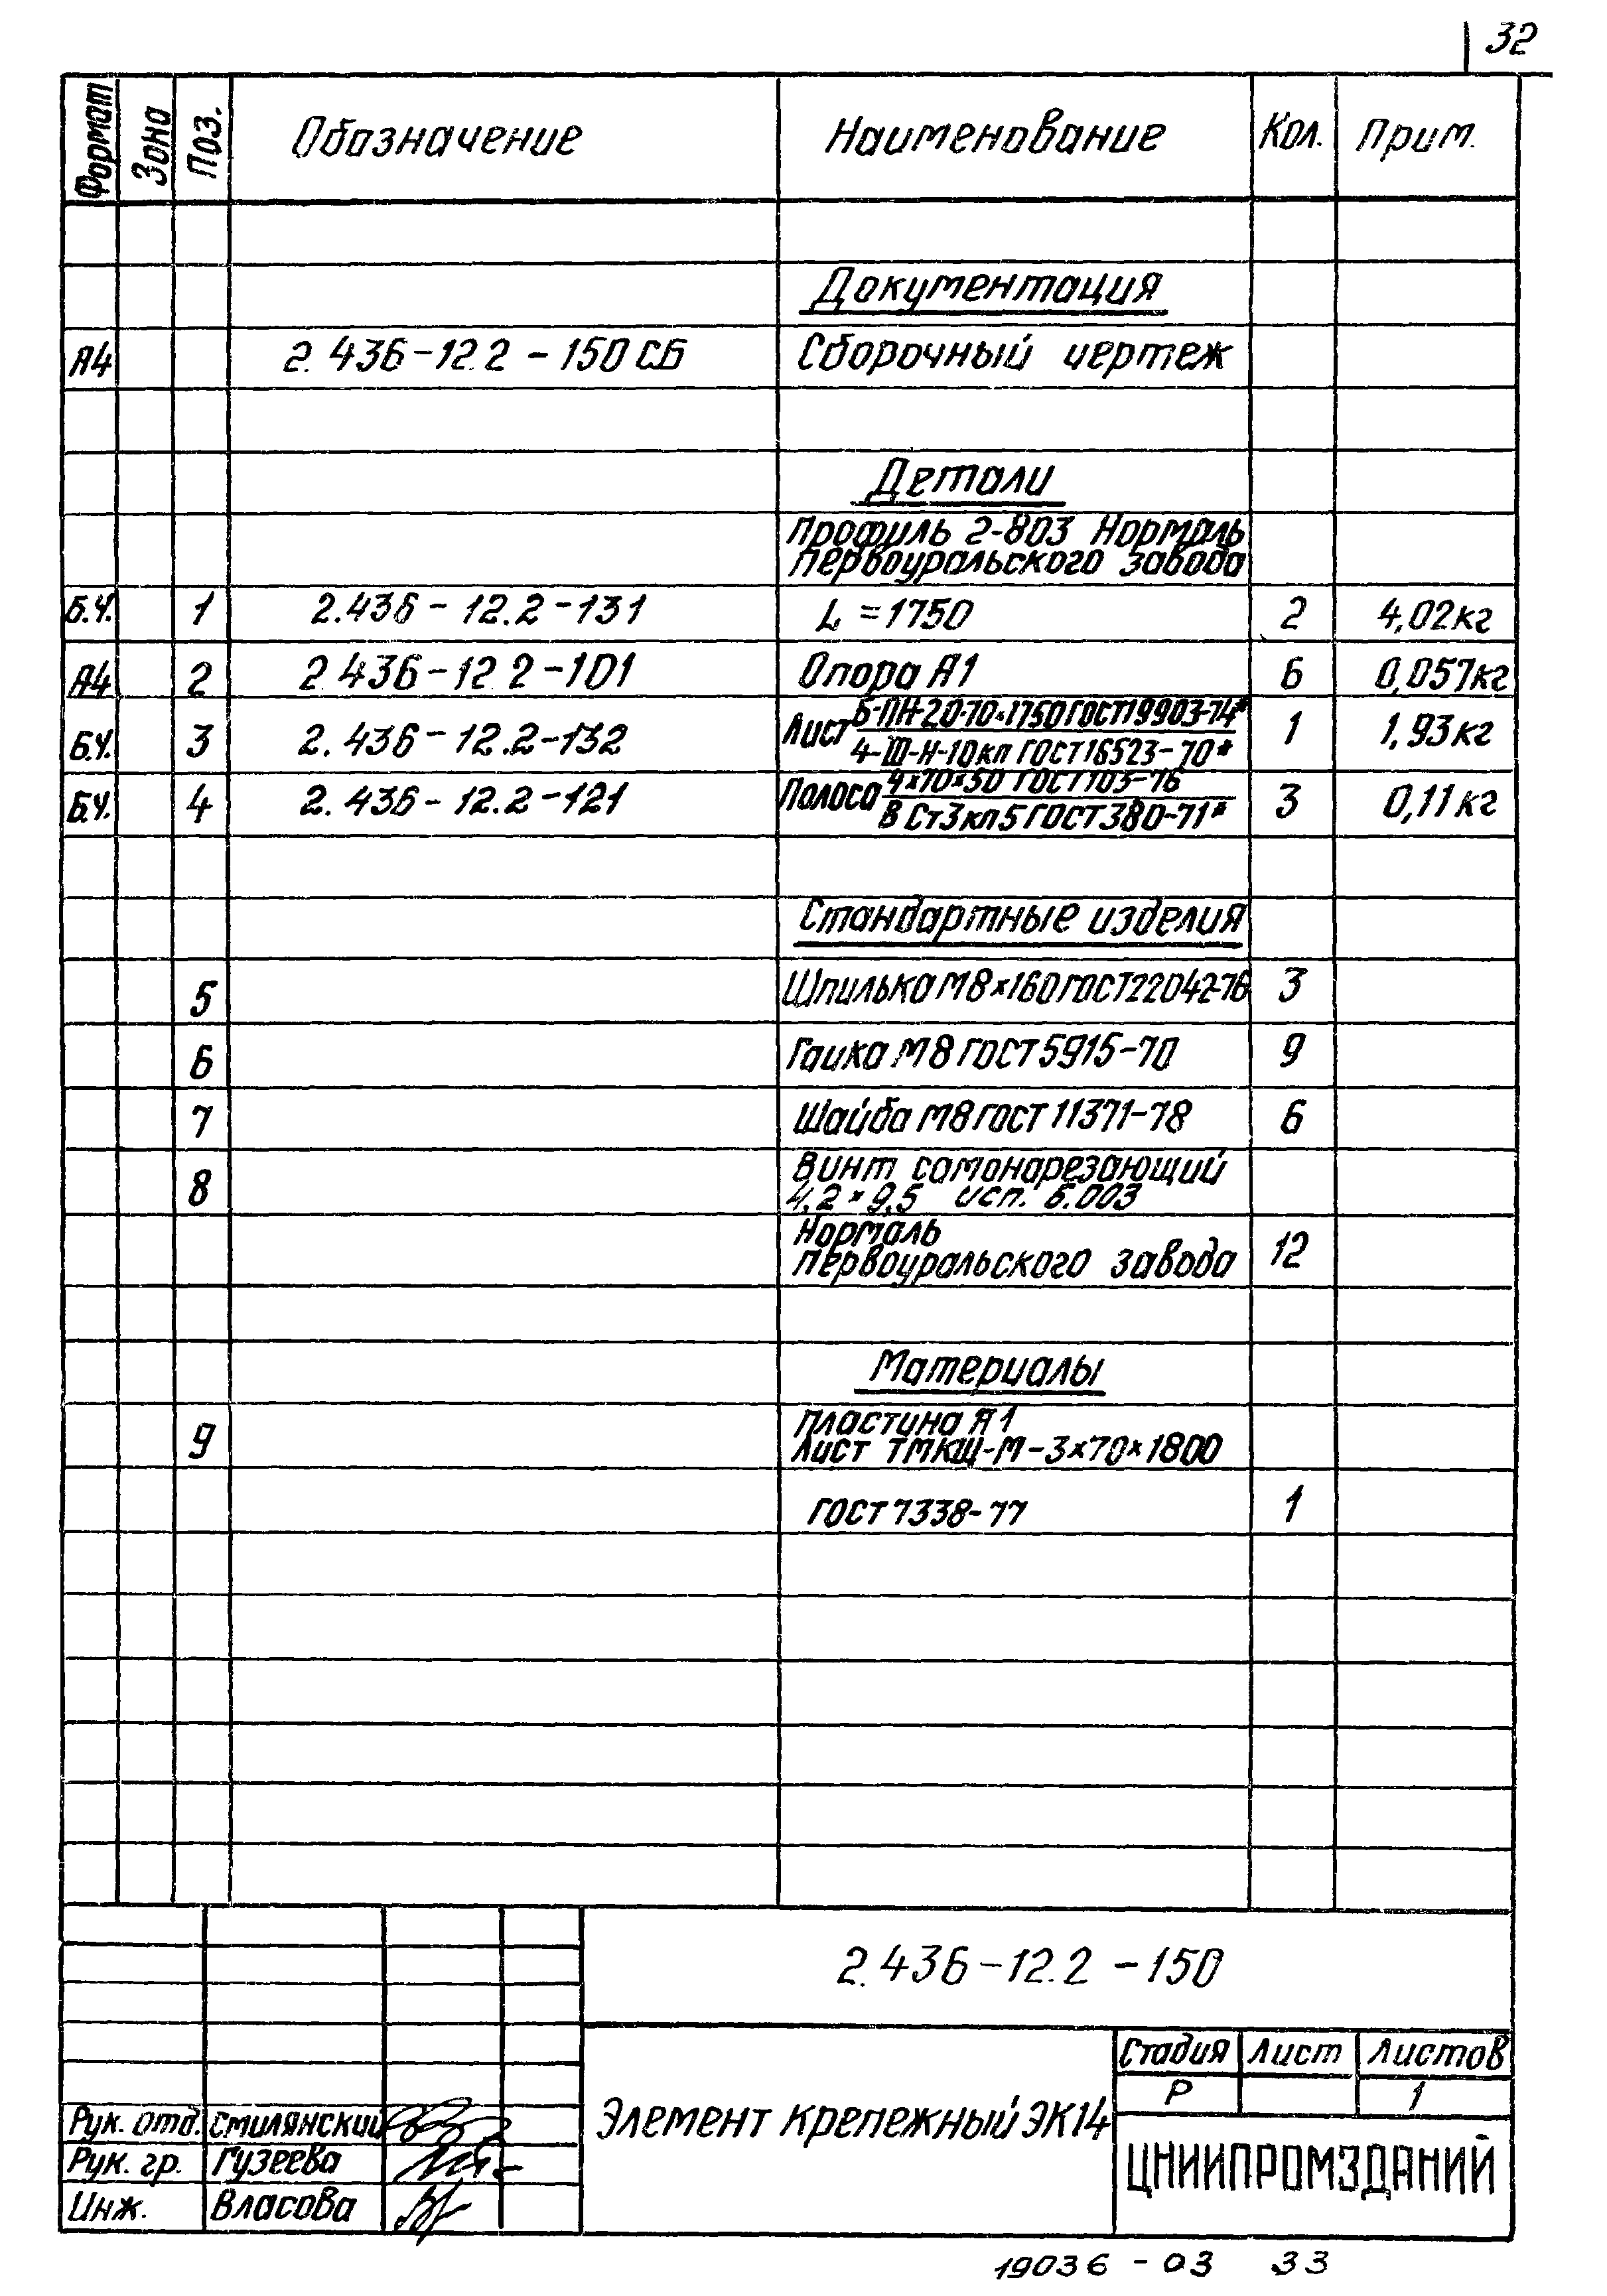 32
Формат Зона Поз. Обозначение Наименование Кол. Прим.
Документация
А4 2.436-12.2-150 СБ Сборочный чертеж
Детали
Профиль 2-803 Нормаль
Первоуральского завода
Б.Ч. 1 2.436-12.2-131 L=1750 2 4,02кг
А4 2 2.436-12.2-101 Опора А1 6 0,057кг
Б.Ч. 3 2.436-12.2-132 Лист Б-ПН-2,0×70×1750 ГОСТ19903-74* 1 1,93кг
4-Ш-Н-10кп ГОСТ16523-70*
Б.Ч. 4 2.436-12.2-121 Полоса 4×70×50 ГОСТ103-76 3 0,11кг
В Ст3кп5 ГОСТ380-71*
Стандартные изделия
5 Шпилька М8×160 ГОСТ22042-76 3
6 Гайка М8 ГОСТ5915-70 9
7 Шайба М8 ГОСТ 11371-78 6
8 Винт самонарезающий
4,2×9,5 исп. Б.003
Нормаль
Первоуральского завода 12
Материалы
9 Пластина А1
Лист ТМКЩ-М-3×70×1800
ГОСТ 7338-77 1
2.436-12.2-150
Элемент крепежный ЭК14
Стадия Лист Листов
Р 1
ЦНИИПРОМЗДАНИЙ
Рук. отд. Смилянский
Рук. гр. Гузеева
Инж. Власова
19036-03 33